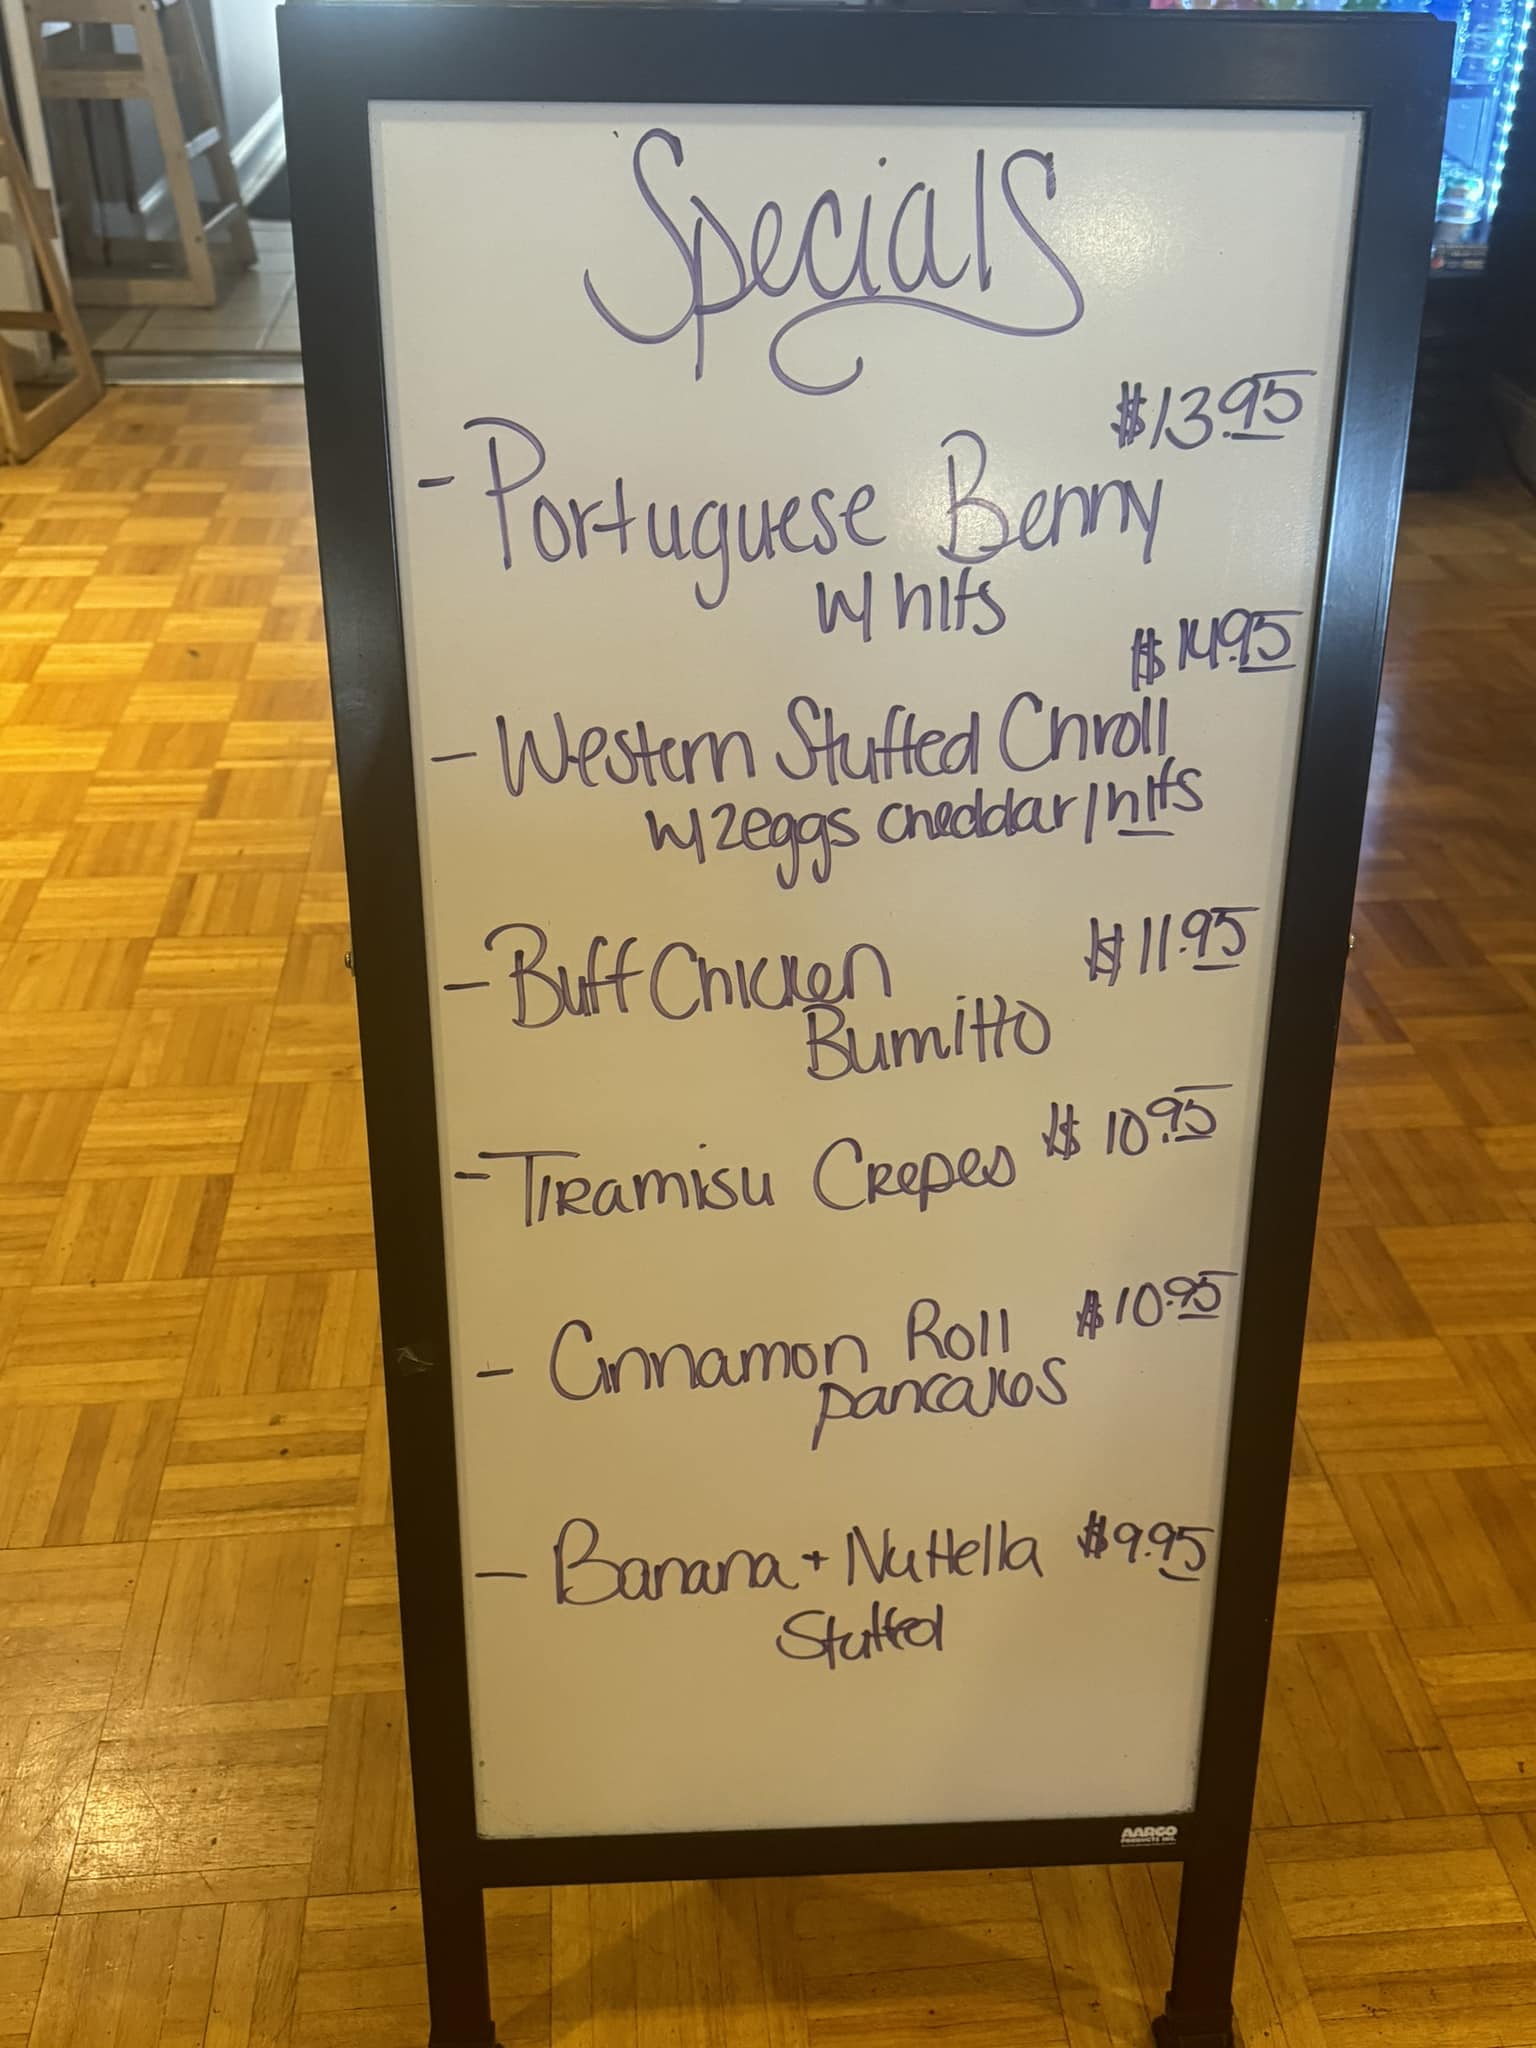 Specials
$13.95
- Portuguese Benny
w/ hfs
$14.95
- Western Stuffed Chroll
w/ 2eggs cheddar/hfs
- Buff Chicken $11.95
Burritto
- Tiramisu Crepes $10.95
- Cinnamon Roll $10.95
pancakes
- Banana + Nuttella $9.95
Stuffed
AARCO
PRODUCTS INC.